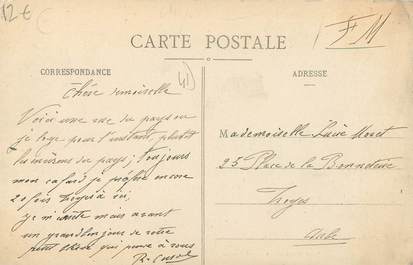 12 €
CARTE POSTALE
FM
CORRESPONDANCE
41
ADRESSE
Chère demoiselle
Voici une vue du pays ou
je loge pour l'instant, plutot
du pays; toujours
mon cafard je préfère encore
20 fois Troyes à ici,
je m'ennuie mais ayant
un grand bonjour de votre
petit qui pense à vous
Mademoiselle Lucie
25 Place de la Bonneterie
Troyes
Aube